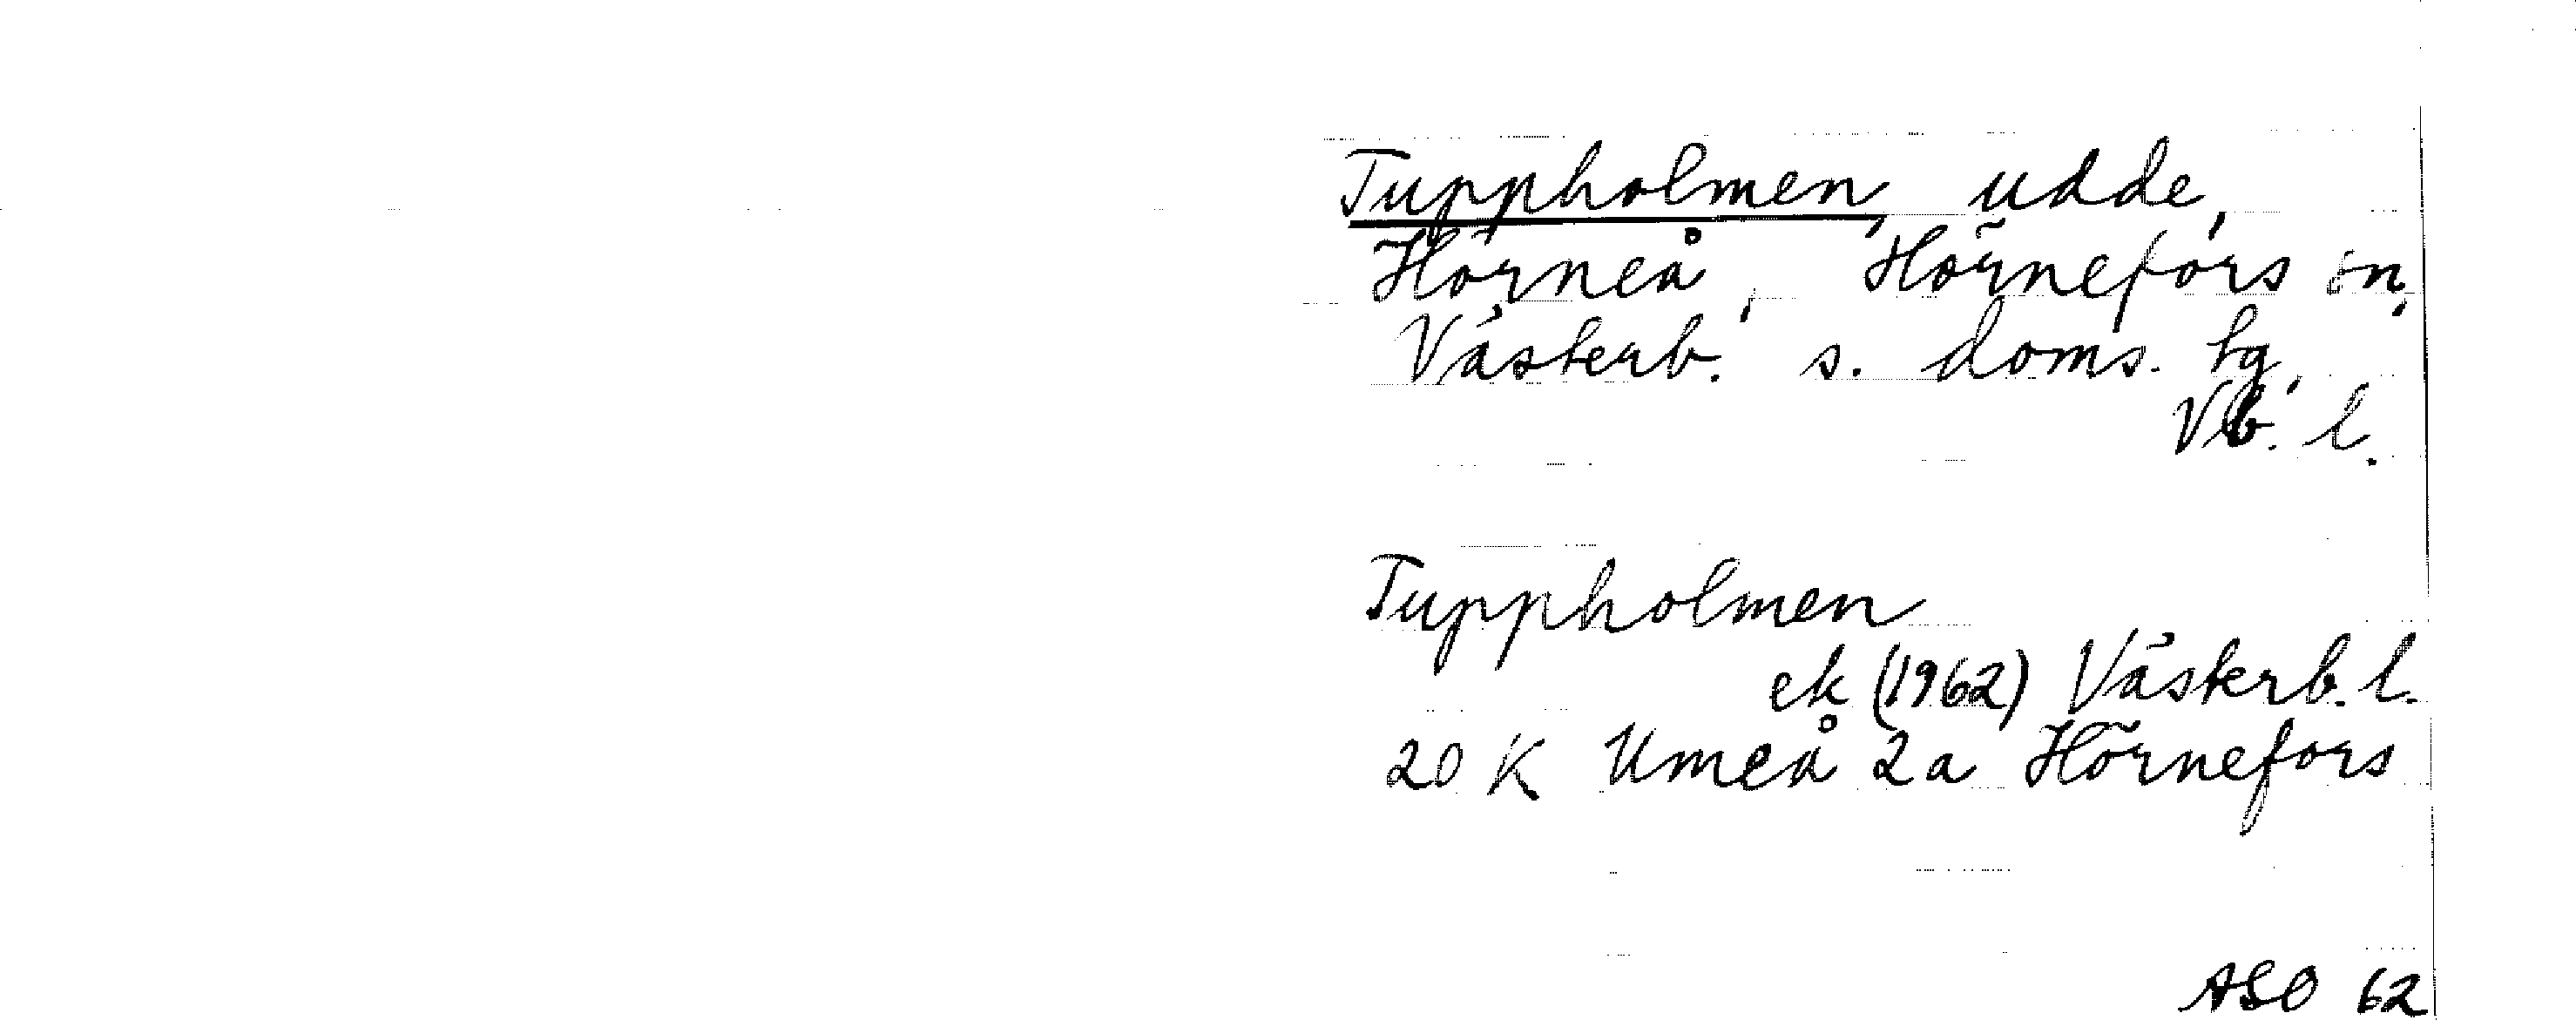 Tuppholmen, udde,
Hörneå, Hörnefors sn,
Västerb. s. doms. tg,
Vb. l.
Tuppholmen
ek (1962) Västerb. l.
20 K Umeå 2a Hörnefors
ASO 62